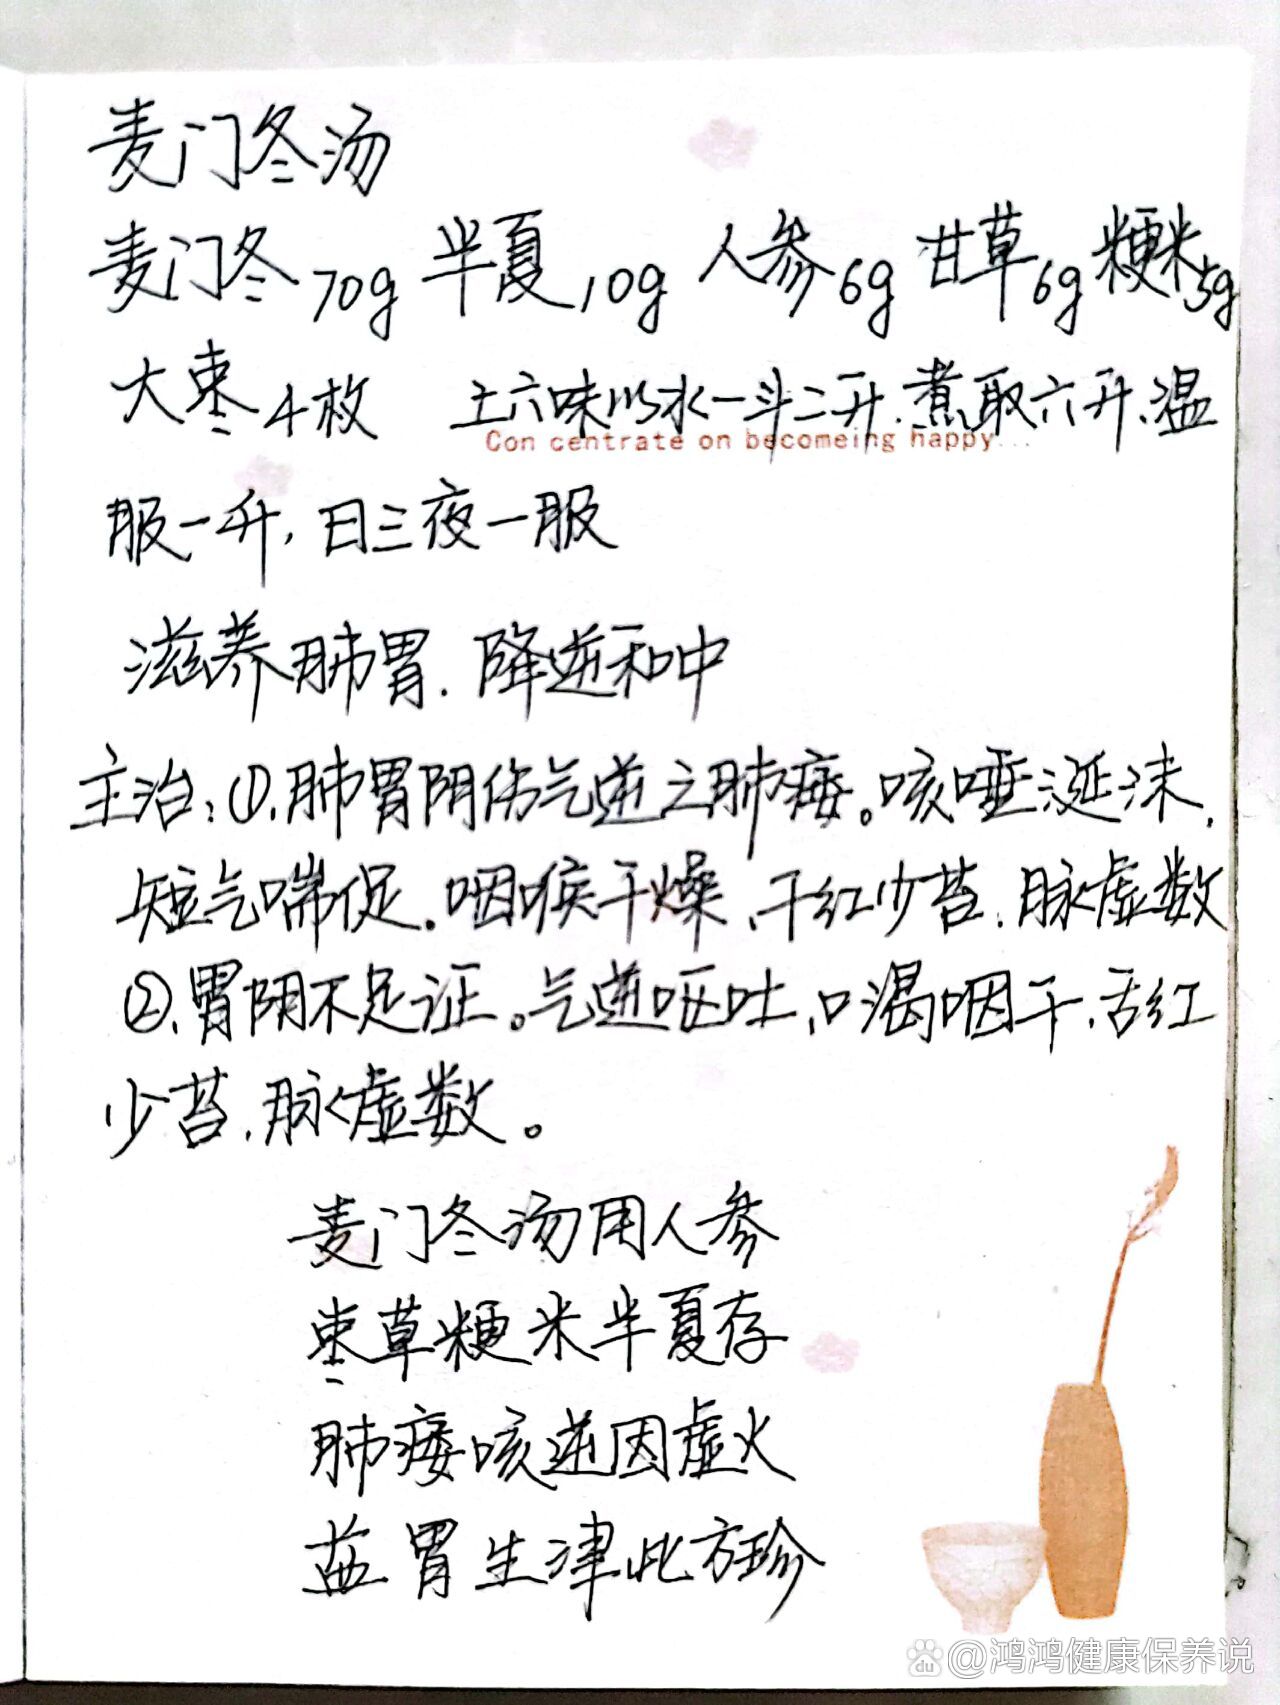 麦门冬汤
麦门冬70g 半夏10g 人参6g 甘草6g 粳米5g
大枣4枚 上六味以水一斗二升.煮取六升、温
Con centrate on becomeing happy...
服一升,日三夜一服
滋养肺胃.降逆和中
主治:①.肺胃阴伤气逆之肺痿。咳唾涎沫,
短气喘促.咽喉干燥、干红少苔.脉虚数
②.胃阴不足证。气逆呕吐,口渴咽干.舌红
少苔.脉虚数。
麦门冬汤用人参
枣草粳米半夏存
肺痿咳逆因虚火
益胃生津此方珍
Bai du @鸿鸿健康保养说